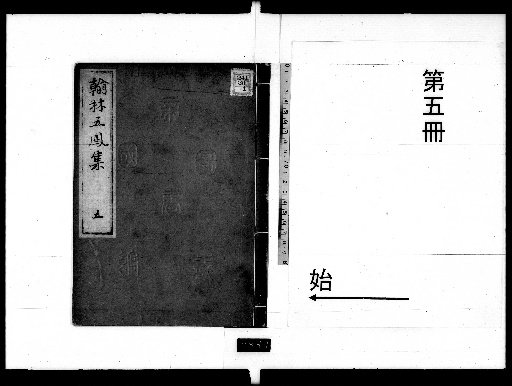 第五冊
始
翰林五鳳集
五